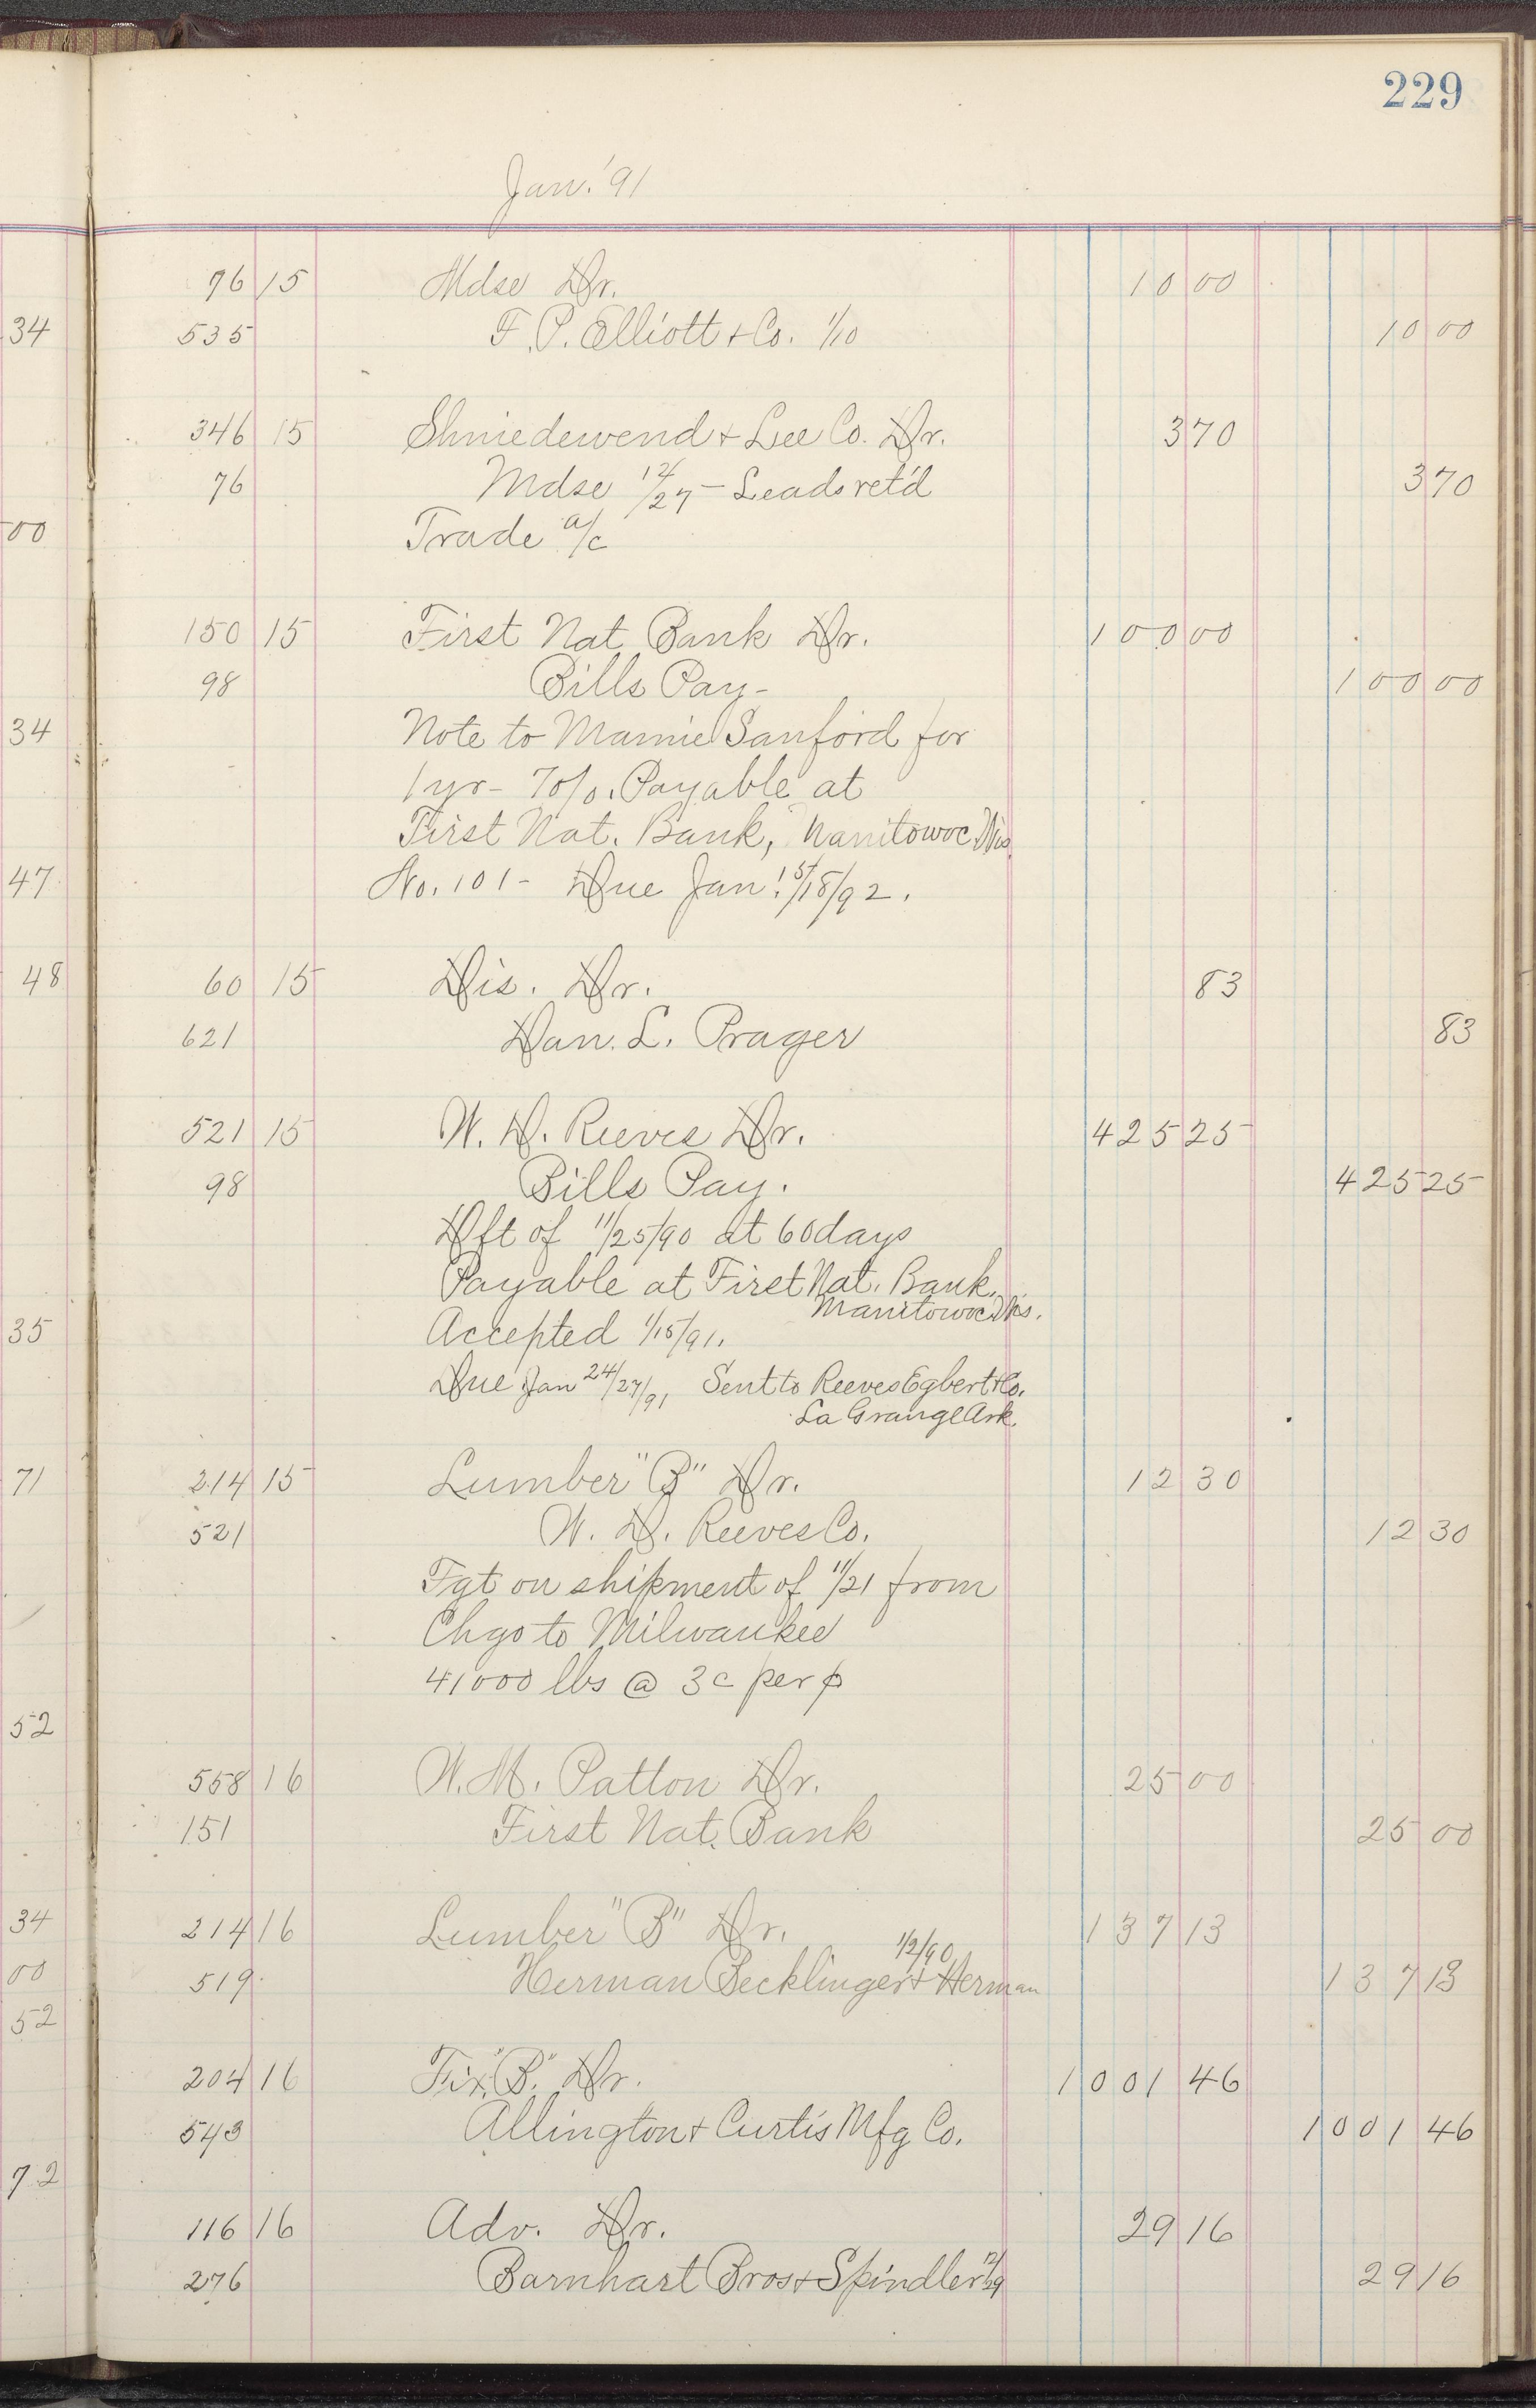 229
Jan. '91
76 15 Mdse Dr. 10 00
34 535 F. P. Elliott & Co. 1/10 10 00
346 15 Shniedewend & Lee Co. Dr. 3 70
76 Mdse 12/27 - Leads ret'd 3 70
00 Trade a/c
150 15 First Nat. Bank Dr. 100 00
98 Bills Pay- 100 00
34 Note to Mamie Sanford for
1 yr - 7 o/o. Payable at
First Nat. Bank, Manitowoc Wis
47 No. 101 - Due Jan. 15/18/92.
48 60 15 Dis. Dr. 83
621 Dan. L. Prager 83
521 15 W. D. Reeves Dr. 425 25
98 Bills Pay. 425 25
Dft of 11/25/90 at 60 days
Payable at First Nat. Bank.
Manitowoc Wis.
35 Accepted 1/15/91.
Due Jan 24/27/91 Sent to Reeves Egbert & Co.
La Grange Ark.
71 214 15 Lumber "B" Dr. 12 30
521 W. D. Reeves Co. 12 30
Fgt on shipment of 11/21 from
Chgo to Milwaukee
41000 lbs @ 3c per
52
558 16 W. M. Patton Dr. 25 00
151 First Nat. Bank 25 00
34 214 16 Lumber "B" Dr. 137 13
1/2/90
00 519 Herman Becklinger & Herman 137 13
52
204 16 Fix. "B" Dr. 1001 46
543 Allington & Curtis Mfg Co. 1001 46
72
116 16 Adv. Dr. 29 16
276 Barnhart Bros & Spindler 12/29 29 16